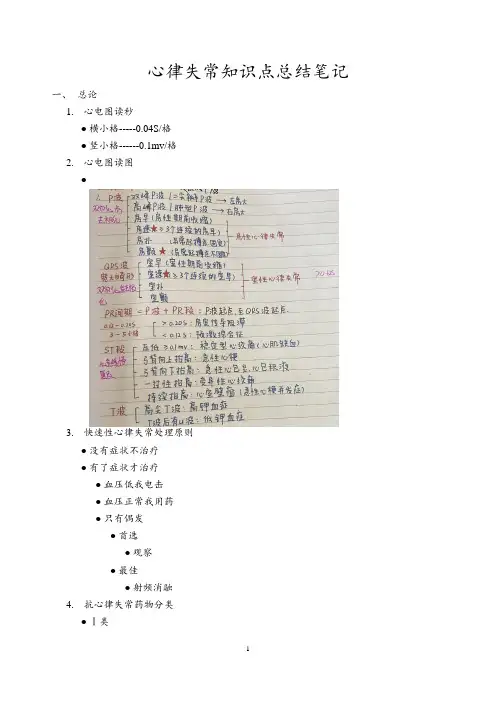 心律失常知识点总结笔记
一、 总论
1. 心电图读秒
● 横小格-----0.04S/格
● 竖小格------0.1mv/格
2. 心电图读图
●
P波
双峰P波 (二尖瓣P波 → 左房大
高峰P波 (肺型P波 → 右房大
房早 (房性期前收缩)
房速★ ≥3个连续的房早
房扑
房颤★
房性心律失常
QRS波
室早 (室性期前收缩)
室速★ (≥3个连续的室早)
室扑
室颤
室性心律失常
PR间期 = P波 + PR段: P波起点至QRS波起点
0.12-0.20S
3-5小格
> 0.20S: 房室性导阻滞
< 0.12S: 预激综合征
ST段
压低 ≥0.1mv: 稳定型心绞痛 (心肌缺血)
弓背向上抬高: 急性心梗
弓背向下抬高: 急性心包炎、心包积液
一过性抬高: 变异性心绞痛
持续抬高: 心室壁瘤 (急性心梗并发症)
T波
高尖T波: 高钾血症
T波后有U波: 低钾血症
3. 快速性心律失常处理原则
● 没有症状不治疗
● 有了症状才治疗
● 血压低我电击
● 血压正常我用药
● 只有偶发
● 首选
● 观察
● 最佳
● 射频消融
4. 抗心律失常药物分类
● Ⅰ类
1